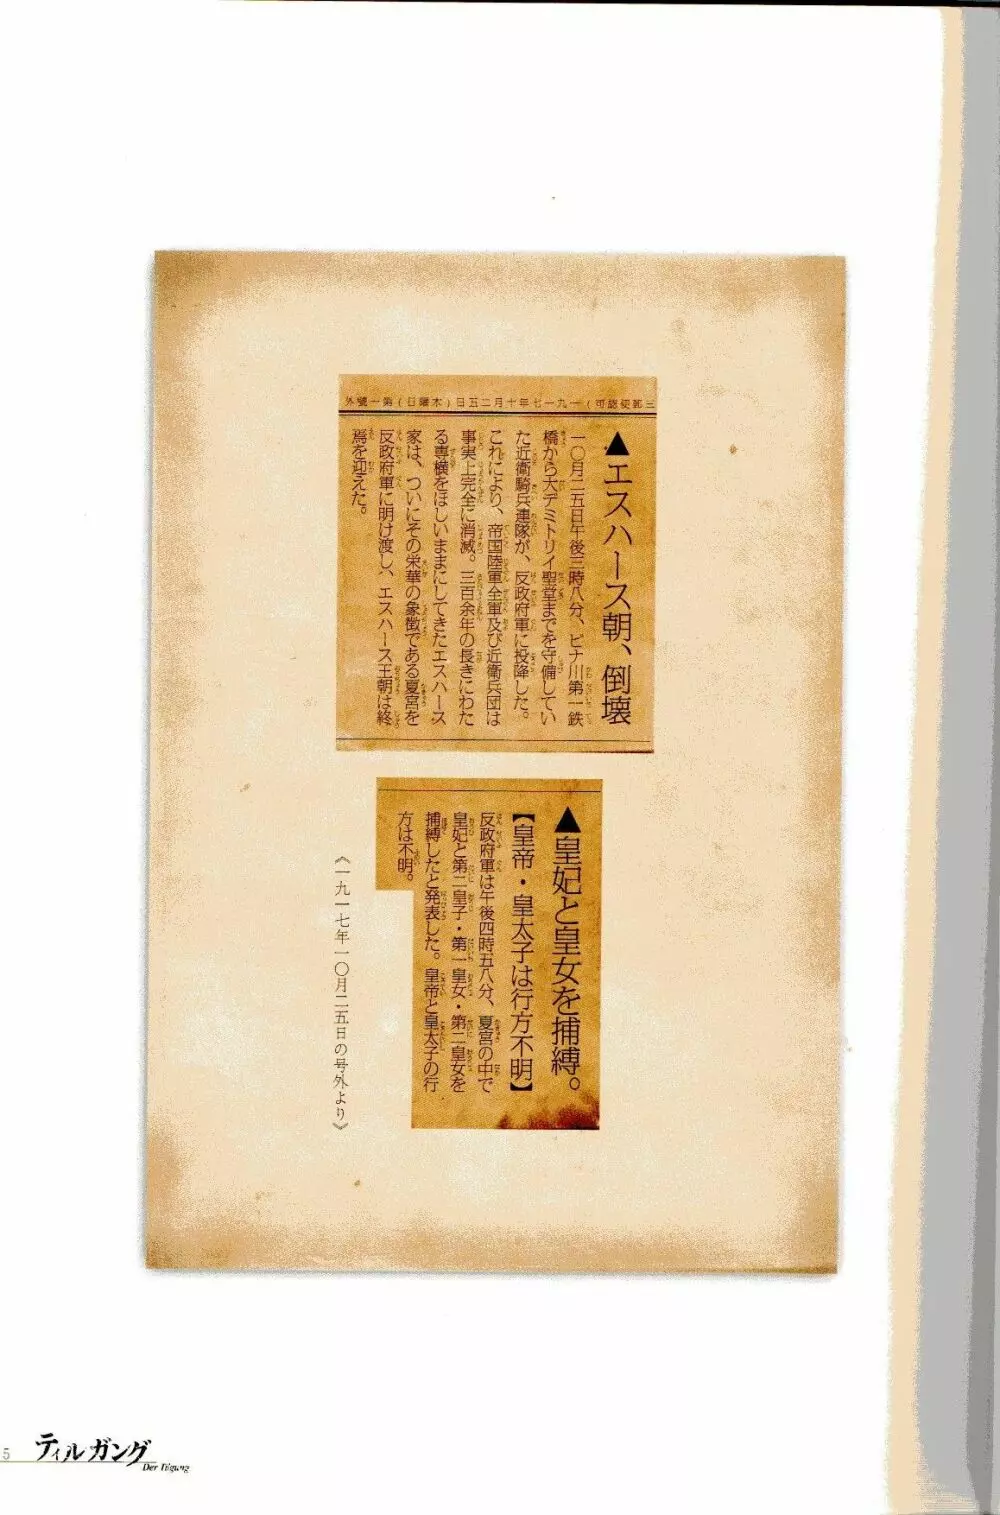 三郵便認可)一九一七年十月二五日(木曜日)第一號外
▲エスハース朝、倒壊
一〇月二五日午後三時八分、ビナ川第一鉄
橋から大デミトリイ聖堂までを守備してい
た近衛騎兵連隊が、反政府軍に投降した。
これにより、帝国陸軍全軍及び近衛兵団は
事実上完全に消滅。三百余年の長きにわた
る専横をほしいままにしてきたエスハース
家は、ついにその栄華の象徴である夏宮を
反政府軍に明け渡し、エスハース王朝は終
焉を迎えた。
▲皇妃と皇女を捕縛。
【皇帝・皇太子は行方不明】
反政府軍は午後四時五八分、夏宮の中で
皇妃と第二皇子・第一皇女・第二皇女を
捕縛したと発表した。皇帝と皇太子の行
方は不明。
《一九一七年一〇月二五日の号外より》
5
ティルガング